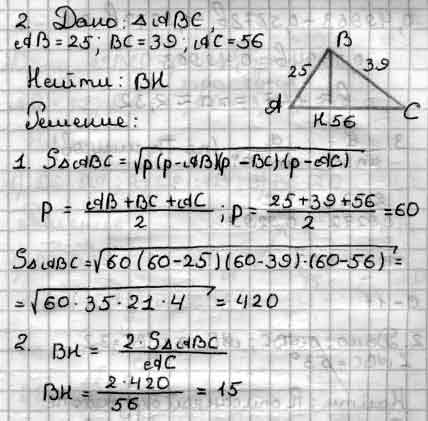 2. Дано: ΔABC,
AB = 25; BC = 39; AC = 56
Найти: BH
Решение:
B
25
39
A
H
56
C
1. SΔABC = √p(p-AB)(p-BC)·(p-AC)
P = (AB + BC + AC)/2 ; p = (25+39+56)/2 = 60
SΔABC = √60(60-25)(60-39)·(60-56) =
= √60·35·21·4 = 420
2. BH = 2·SΔABC/AC
BH = 2·420/56 = 15